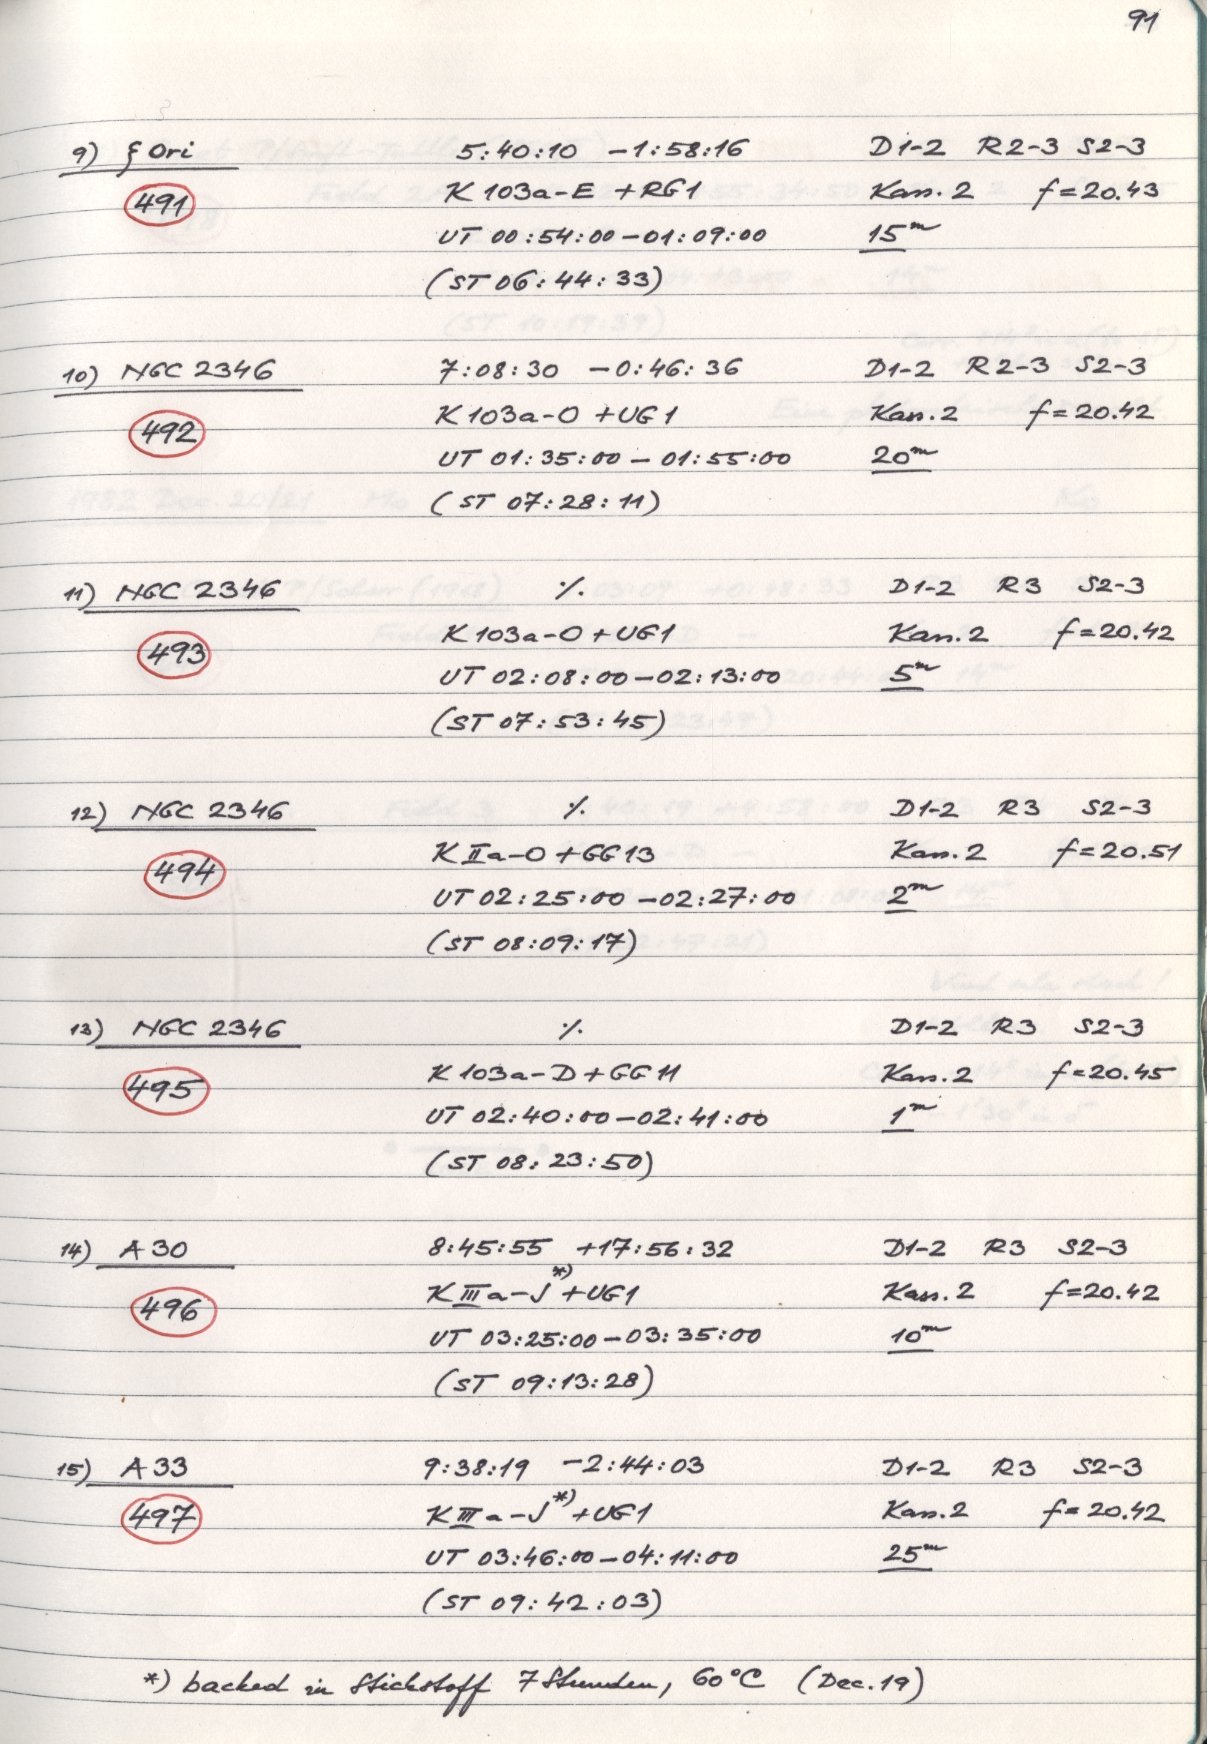 91
9) ζ Ori 5:40:10 -1:58:16 D1-2 R2-3 S2-3
491 K 103a-E + RG1 Kas. 2 f=20.43
UT 00:54:00-01:09:00 15ᵐ
(ST 06:44:33)
10) NGC 2346 7:08:30 -0:46:36 D1-2 R2-3 S2-3
492 K 103a-O + UG1 Kas. 2 f=20.42
UT 01:35:00-01:55:00 20ᵐ
(ST 07:28:11)
11) NGC 2346 ٪. D1-2 R3 S2-3
493 K 103a-O + UG1 Kas. 2 f=20.42
UT 02:08:00-02:13:00 5ᵐ
(ST 07:53:45)
12) NGC 2346 ٪. D1-2 R3 S2-3
494 K IIa-O + GG13 Kas. 2 f=20.51
UT 02:25:00-02:27:00 2ᵐ
(ST 08:09:17)
13) NGC 2346 ٪. D1-2 R3 S2-3
495 K 103a-D + GG11 Kas. 2 f=20.45
UT 02:40:00-02:41:00 1ᵐ
(ST 08:23:50)
14) A 30 8:45:55 +17:56:32 D1-2 R3 S2-3
496 K IIIa-J*) + UG1 Kas. 2 f=20.42
UT 03:25:00-03:35:00 10ᵐ
(ST 09:13:28)
15) A 33 9:38:19 -2:44:03 D1-2 R3 S2-3
497 K IIIa-J*) + UG1 Kas. 2 f=20.42
UT 03:46:00-04:11:00 25ᵐ
(ST 09:42:03)
*) backed in Stickstoff 7 Stunden, 60°C (Dec. 19)